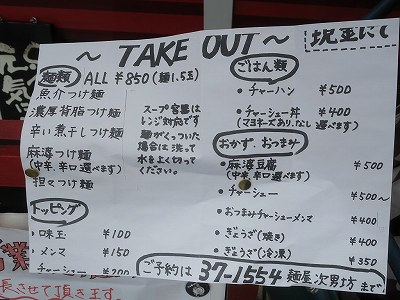 ～ TAKE OUT ～
現金にて
麺類 ALL ¥850 (麺1.5玉)
魚介つけ麺
濃厚背脂つけ麺
辛い煮干しつけ麺
麻婆つけ麺
(中辛、辛口選べます)
担々つけ麺
スープ容器は
レンジ対応です
麺がくっついた
場合は洗って
水をよく切って
ください。
トッピング
・味玉 ¥100
・メンマ ¥150
チャーシュー ¥200
ごはん類
・チャーハン ¥500
・チャーシュー丼 ¥400
(マヨネーズあり、なし 選べます)
おかず、おつまみ
・麻婆豆腐 ¥500
(中辛、辛口選べます)
・チャーシュー ¥500～
・おつまみチャーシューメンマ ¥400
・ぎょうざ(焼き) ¥400
・ぎょうざ(冷凍) ¥350
ご予約は 37-1554 麺屋次男坊 まで
元気
業
長させて頂き玉す。